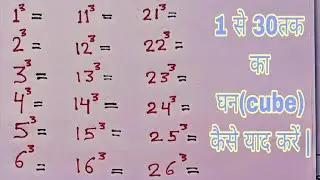 1³ = 11³ = 21³ =
2³ = 12³ = 22³ =
3³ = 13³ = 23³ =
4³ = 14³ = 24³ =
5³ = 15³ = 25³ =
6³ = 16³ = 26³ =
1 से 30तक
का
घन(cube)
कैसे याद करें |